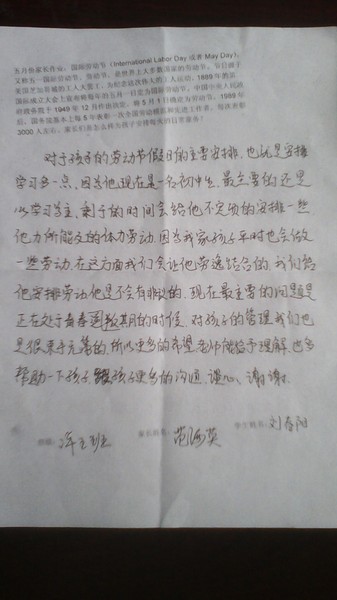 五月份家长作业：国际劳动节（International Labor Day 或者 May Day），
又称五一国际劳动节、劳动节，是世界上大多数国家的劳动节。节日源于
美国芝加哥城的工人大罢工，为纪念这次伟大的工人运动，1889年的第
国际成立大会上宣布将每年的五月一日定为国际劳动节。中国中央人民政
府政务院于1949年12月作出决定，将5月1日确定为劳动节。1989年
国务院基本上每5年表彰一次全国劳动模范和先进工作者，每次表彰
3000人左右。家长们怎么样为孩子安排
对于孩子的劳动节假日的主要安排，也就是安排
学习多一点，因为他现在是一名初中生，最主要的还是
以学习为主，剩于的时间会给他不定项的安排一些
他力所能及的体力劳动，因为我家孩子平时也会做
一些劳动，在这方面我们会让他劳逸结合的，我们给
他安排劳动他是不会有非议的，现在最主要的问题是
正在处于青春期的时候，对孩子的管理我们也
是很束手无策的，所以更多的希望老师能给予理解，也多
帮助一下孩子，跟孩子更多的沟通，谈心，谢谢。
班级：
家长姓名：范海英
学生姓名：刘春阳